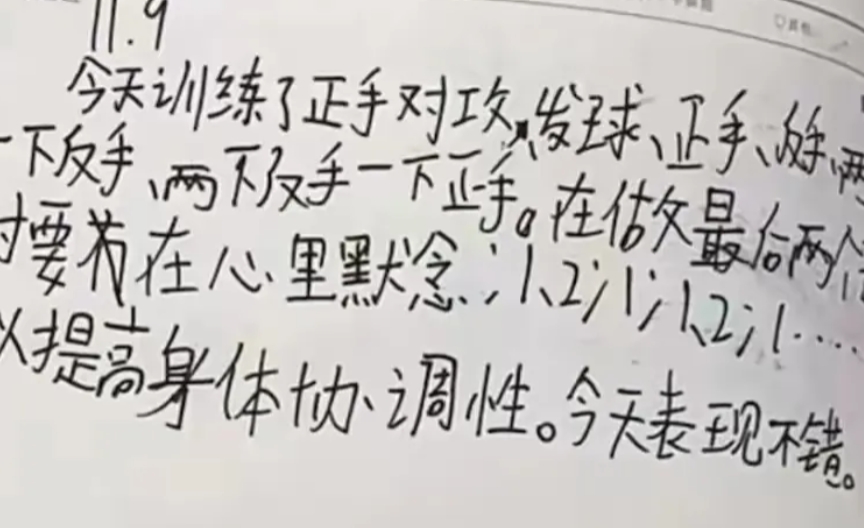 11.9
今天训练了正手对攻、发球、正手、反手、两
一下反手、两下反手一下正手。在做最后两个
时要在心里默念:1、2;1;1、2;1……
以提高身体协调性。今天表现不错。